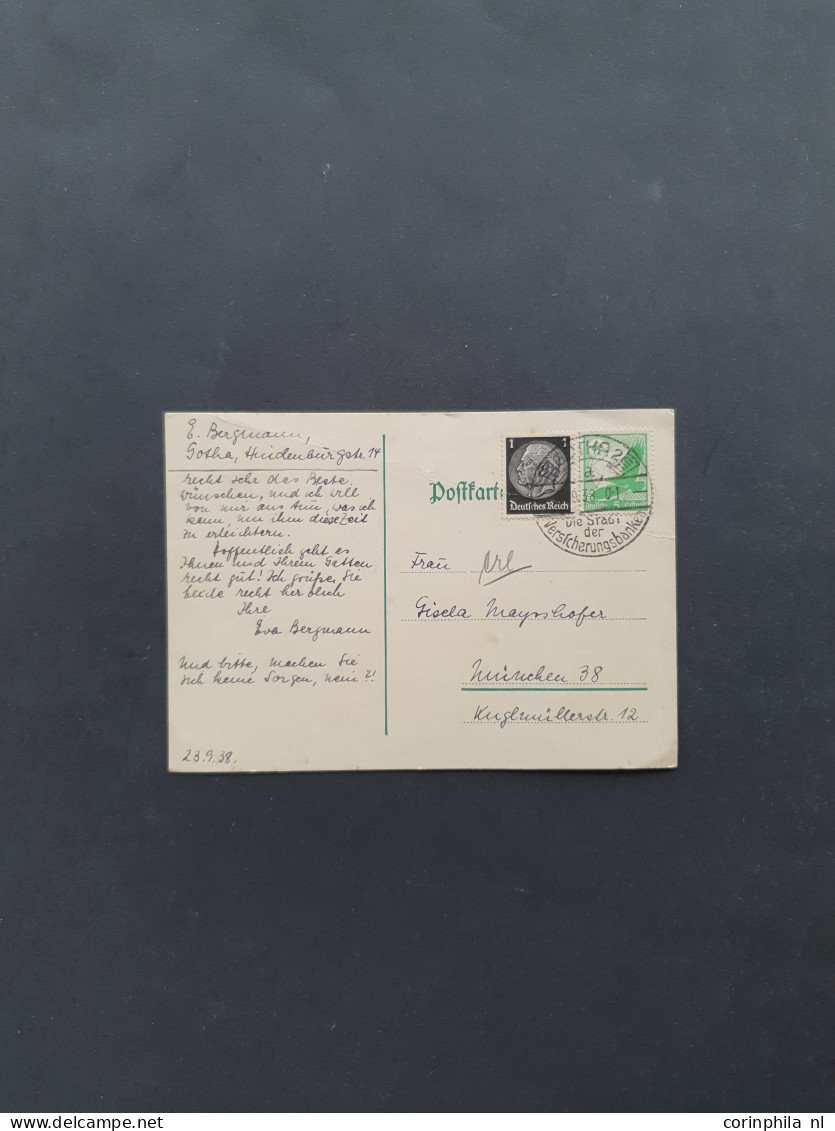 E. Bergmann,
Gotha, Hindenburgstr. 14
recht sehr das Beste
wünschen, und ich will
von mir aus tun, was ich
kann, um ihm diese Zeit
zu erleichtern.
Hoffentlich geht es
Ihnen und Ihrem Gatten
recht gut! Ich grüße Sie
beide recht herzlich
Ihre
Eva Bergmann
Und bitte, machen Sie
sich keine Sorgen, nein?!
23.9.38.
Postkarte
1
Deutsches Reich
5
Die Stadt
der
Versicherungsbanken
Frau
Gisela Mayrshofer
München 38
Kuglmüllerstr. 12
corinphila nl